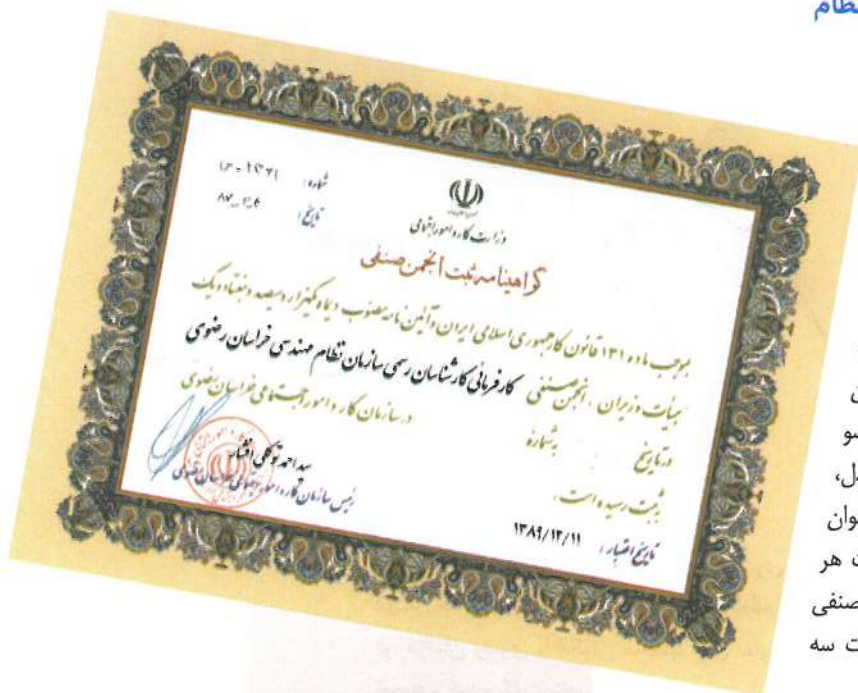 نظام
شماره:
تاریخ:
وزارت کار و امور اجتماعی
گواهینامه ثبت انجمن صنفی
بموجب ماده ۱۳۱ قانون کار جمهوری اسلامی ایران و آئین نامه مصوب دیماه یکهزار و سیصد و هفتاد و یک
هیأت وزیران ، انجمن صنفی کارفرمائی کارشناسان رسمی سازمان نظام مهندسی خراسان رضوی
در تاریخ به شماره در سازمان کار و امور اجتماعی خراسان رضوی
به ثبت رسیده است .
سید احمد توکلی افشار
رئیس سازمان کار و امور اجتماعی خراسان رضوی
تاریخ اعتبار : ۱۳۸۹/۱۲/۱۱
هر
صنفی
سه